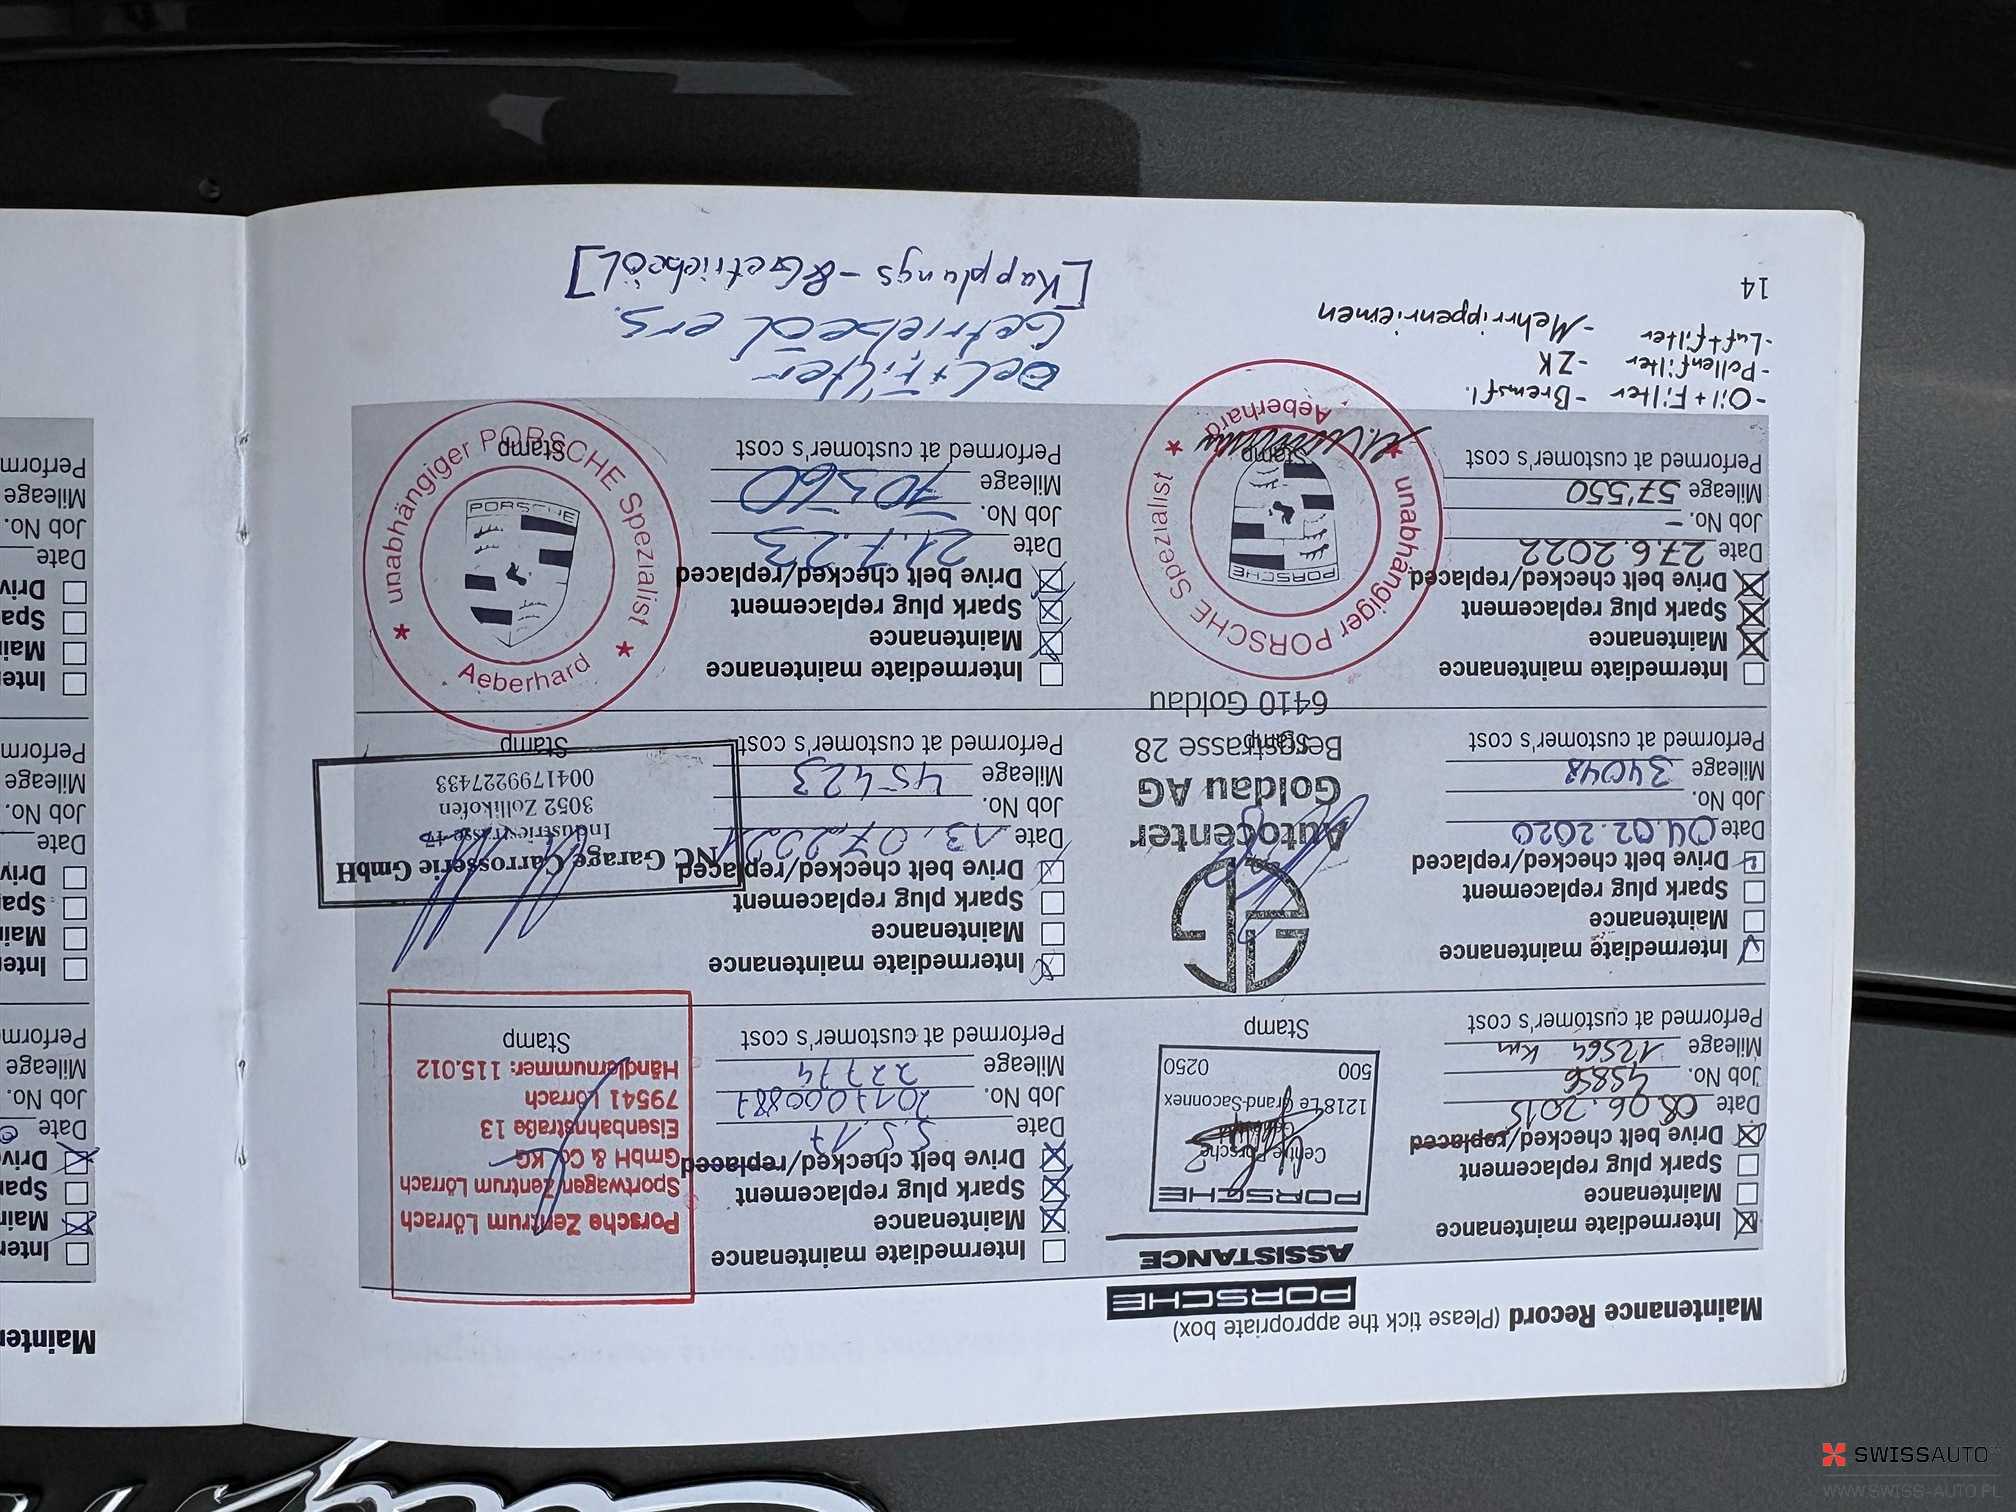 Maintenance Record (Please tick the appropriate box)
PORSCHE
ASSISTANCE
Intermediate maintenance
Maintenance
Spark plug replacement
Drive belt checked/replaced
Date 08.06.2015
Job No. 45856
Mileage 12564 km
Performed at customer's cost
PORSCHE
Centre Porsche
1218 Le Grand-Saconnex
500 0250
Stamp
Intermediate maintenance
Maintenance
Spark plug replacement
Drive belt checked/replaced
Date 5.5.17
Job No. 201700887
Mileage 22774
Performed at customer's cost
Porsche Zentrum Lörrach
Sportwagen Zentrum Lörrach
GmbH & Co. KG
Eisenbahnstraße 13
79541 Lörrach
Händlernummer: 115.012
Stamp
Intermediate maintenance
Maintenance
Spark plug replacement
Drive belt checked/replaced
Date 04.02.2020
Job No.
Mileage 34048
Performed at customer's cost
Autocenter
Goldau AG
Bergstrasse 28
6410 Goldau
Stamp
Intermediate maintenance
Maintenance
Spark plug replacement
Drive belt checked/replaced
Date 13.07.2021
Job No.
Mileage 45423
Performed at customer's cost
NC Garage Carrosserie GmbH
Industriestrasse
3052 Zollikofen
0041799227433
Stamp
Intermediate maintenance
Maintenance
Spark plug replacement
Drive belt checked/replaced
Date 27.6.2022
Job No. -
Mileage 57'550
Performed at customer's cost
unabhängiger PORSCHE Spezialist
PORSCHE
Aeberhard
Stamp
Intermediate maintenance
Maintenance
Spark plug replacement
Drive belt checked/replaced
Date 21.7.23
Job No.
Mileage 70560
Performed at customer's cost
unabhängiger PORSCHE Spezialist
PORSCHE
Aeberhard
Stamp
-Oil+Filter -Bremsfl.
-Pollenfilter -ZK
-Luftfilter -Mehrrippenriemen
Oel+Filter
Getriebeöl ers.
[Kupplungs-&Getriebeöl]
14
Mainte
Inter
Main
Spar
Drive
Date
Job No.
Mileage
Perform
Inter
Main
Spa
Driv
Date
Job No.
Mileage
Perform
Inter
Main
Spa
Driv
Date
Job No.
Mileage
Perform
SWISSAUTO
WWW.SWISS-AUTO.PL